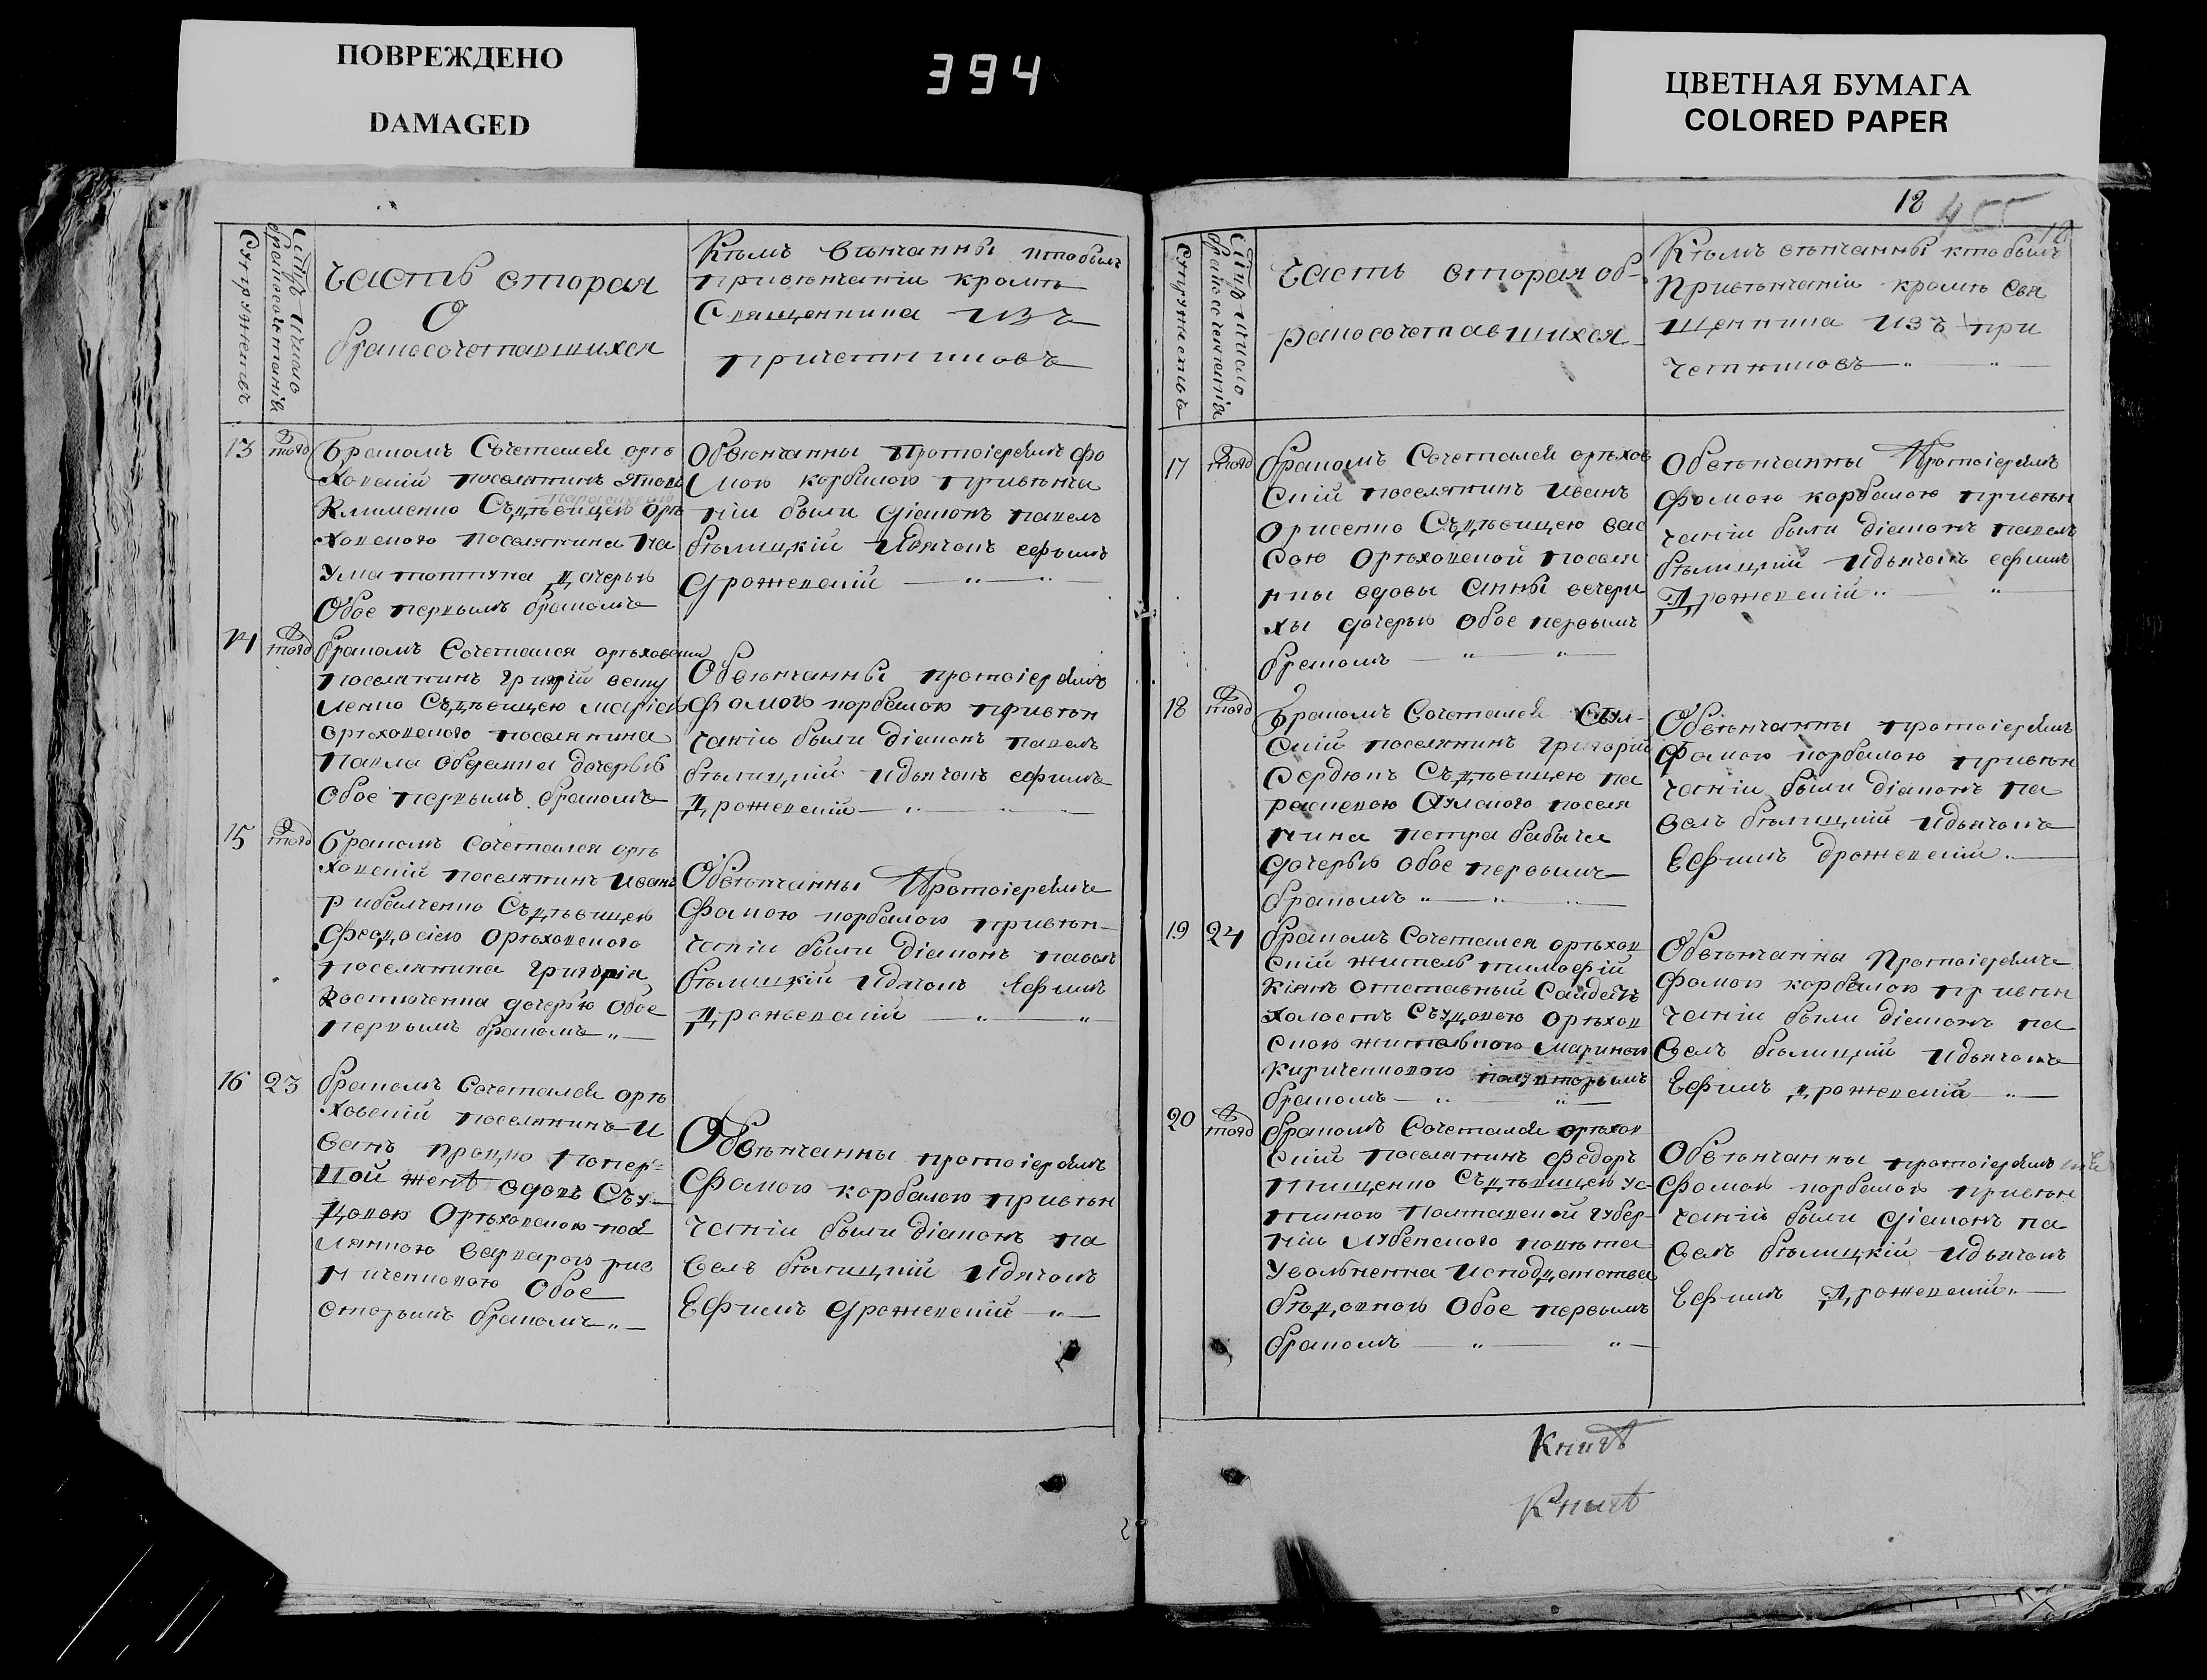 ПОВРЕЖДЕНО
DAMAGED
394
ЦВЕТНАЯ БУМАГА
COLORED PAPER
Супружествъ
число
бракосочетанія
часть вторая
О
бракосочетавшихся
Кѣмъ вѣнчанны ктобылъ
привѣнчаніи кромѣ
Священника изъ
причетниковъ
13
того
Бракомъ Сочетался орѣ
ховскій поселянинъ
Клименко Съдѣвицею орѣ
ховского поселянина на
ума дочерью
Обое первымъ бракомъ
Обвѣнчанны Протоіереймъ фо
мою корбалою привѣнча
ніи были діаконъ павелъ
бѣлицкій идячокъ ефымъ
дрожевскій
14
того
бракомъ Сочетался орѣховскій
поселянинъ григрій
Съдѣвицею
орѣховского поселянина
павла дочерью
Обое первымъ бракомъ
Обвѣнчанны протоіереймъ
фомою корбалою привѣн
чаніи были діаконъ павелъ
бѣлицкій идьячокъ ефимъ
Дрожевскій
15
того
бракомъ Сочетался орѣ
ховскій поселянинъ иванъ
рибалченко Съдѣвицею
феодосіею орѣховского
поселянина григорія
Костюченка дочерью обое
первымъ бракомъ
Обвѣнчанны Протоіереймъ
фомою корбалою привѣн-
чаніи были діаконъ павелъ
бѣлицкій идячокъ Ефимъ
Дрожевскій
16
23
бракомъ Сочетался орѣ
ховскій поселянинъ И
ванъ процко попер=
вой женѣ вдовъ Съу-
довою Орѣховскою посе
лянкою варварою
Обое
вторымъ бракомъ
Обвѣнчанны протоіереймъ
Фомою корбалою привѣн
чаніи были діаконъ па
велъ бѣлицкій идячокъ
Ефимъ дрожевскій
18
455
18
Супружествъ
число
бракосочетанія
Часть вторая об-
ракосочетавшихся
Кѣмъ вѣнчанны ктобылъ
Привѣнчаніи кромѣ Свя
щенника изъ при
четниковъ
17
того
бракомъ Сочетался орѣхов
скій поселянинъ иванъ
орисенко Съдѣвицею вас
сою Орѣховской поселя
нки вдовы анны вечери
хы дочерью Обое первымъ
бракомъ
Обвѣнчанны Протоіереймъ
фомою корбалою привѣн
чаніи были діаконъ павелъ
бѣлицкій идьячокъ ефимъ
Дрожевскій
18
того
бракомъ Сочетался
скій поселянинъ григорій
Сердюкъ Съдѣвицею па
раскевою поселя
нина петра бабича
дочерью обое первымъ
бракомъ
Обвѣнчанны протоіереймъ
фомою корбалою привѣн
чаніи были діаконъ па
велъ бѣлицкій идьячокъ
Ефимъ дрожевскій
19
24
бракомъ Сочетался орѣхов
скій житель тимофій
Кіянъ отставный Салдатъ
холостъ Съудовою орѣхов
скою жителькою мариною
Кириченковою вторымъ
бракомъ
Обвѣнчанны Протоіереймъ
фомою корбалою привѣн
чаніи были діаконъ па
велъ бѣлицкій идьячокъ
Ефимъ дрожевскій
20
того
бракомъ Сочетался орѣхов
скій поселянинъ федоръ
тищенко Съдѣвицею ус
тиною полтавской губер-
ніи лубенского повѣта
уволненна исподданства
Обое первымъ
бракомъ
Обвѣнчанны протоіереймъ
фомою корбалою привѣн
чаніи были діаконъ па
велъ бѣлицкій идьячокъ
Ефимъ Дрожевскій
Книгѣ
Книгѣ